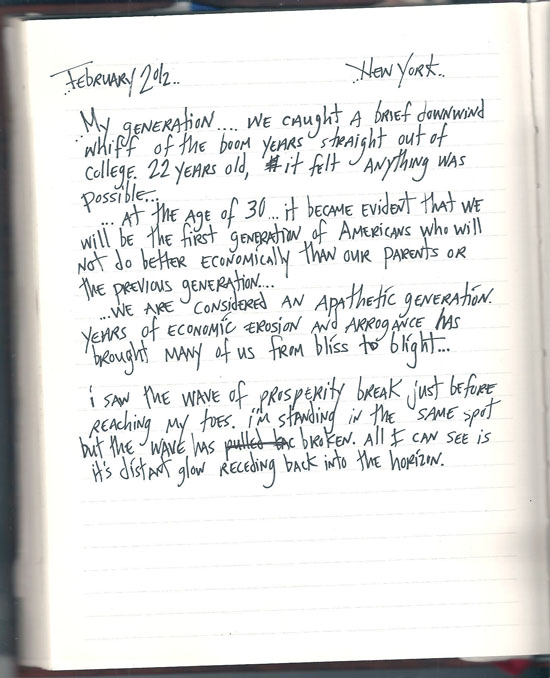 ..February 2012..
..New York..
..My generation.... we caught a brief downwind
whiff of the boom years straight out of
college. 22 years old, it felt anything was
possible...
... At the age of 30... it became evident that we
will be the first generation of Americans who will
not do better economically than our parents or
the previous generation....
...We are considered an apathetic generation.
Years of economic erosion and arrogance has
brought many of us from bliss to blight...
i saw the wave of prosperity break just before
reaching my toes. i'm standing in the same spot
but the wave has pulled bac broken. All I can see is
it's distant glow receding back into the horizon.